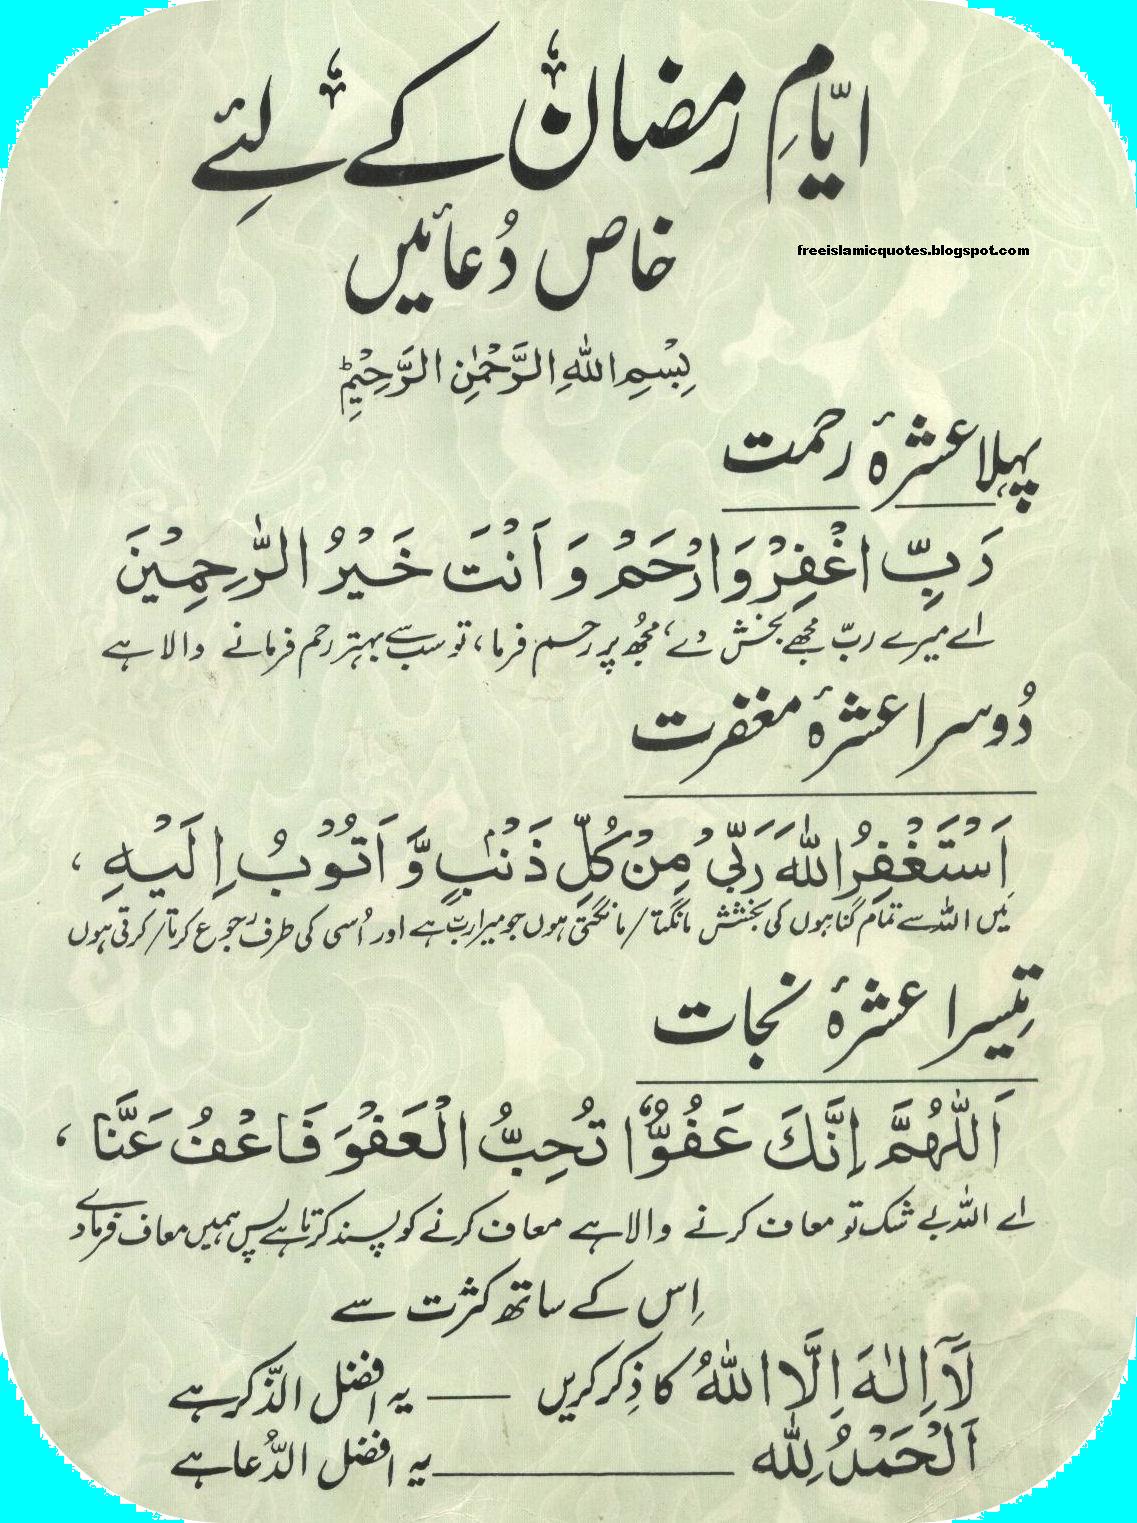 ایّامِ رمضان کے لئے
خاص دُعائیں
freeislamicquotes.blogspot.com
بِسْمِ اللّٰهِ الرَّحْمٰنِ الرَّحِیْمِ
پہلا عشرۂ رحمت
رَبِّ اغْفِرْ وَارْحَمْ وَ اَنْتَ خَیْرُ الرّٰحِمِیْنَ
اے میرے ربّ مجھے بخش دے، مجھ پر رحم فرما، تو سب سے بہتر رحم فرمانے والا ہے
دُوسرا عشرۂ مغفرت
اَسْتَغْفِرُ اللّٰهَ رَبِّیْ مِنْ کُلِّ ذَنْۢبٍ وَّ اَتُوْبُ اِلَیْهِ ،
میں اللہ سے تمام گناہوں کی بخشش مانگتا/مانگتی ہوں جو میرا ربّ ہے اور اُسی کی طرف رجوع کرتا/کرتی ہوں
تِیسرا عشرۂ نجات
اَللّٰهُمَّ اِنَّكَ عَفُوٌّ تُحِبُّ الْعَفْوَ فَاعْفُ عَنَّا ،
اے اللہ بے شک تو معاف کرنے والا ہے معاف کرنے کو پسند کرتا ہے پس ہمیں معاف فرما دے
اِس کے ساتھ کثرت سے
لَآ اِلٰهَ اِلَّا اللّٰهُ کا ذِکر کریں — یہ افضل الذّکر ہے
اَلْحَمْدُ لِلّٰه — یہ افضل الدُّعا ہے